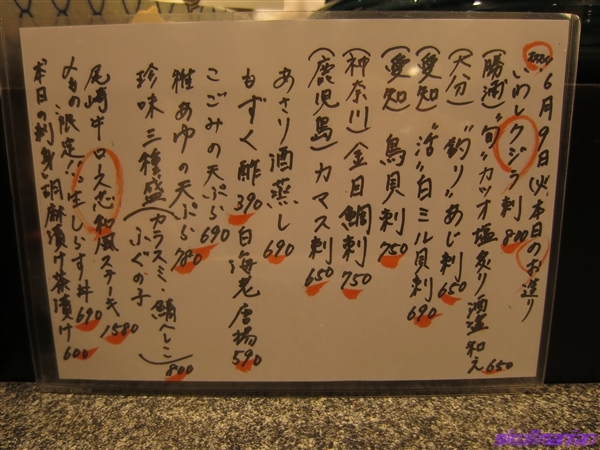 6月9日(火)本日のお造り
いわしクジラ刺 800
(勝浦)“旬”カツオ塩炙り酒盗和え 650
(大分)“釣り”あじ刺 650
(愛知)“活”白ミル貝刺 690
(愛知)鳥貝刺 750
(神奈川)金目鯛刺 750
(鹿児島)カマス刺 650
あさり酒蒸し 690
もずく酢 390 白海老唐揚 590
こごみの天ぷら 690
稚あゆの天ぷら 780
珍味三種盛(カラスミ・鯖へしこ ふぐの子) 800
尾崎牛ロース芯和風ステーキ 1580
〆もの“限定”!!生しらす丼 690
本日の刺身胡麻漬け茶漬け 600